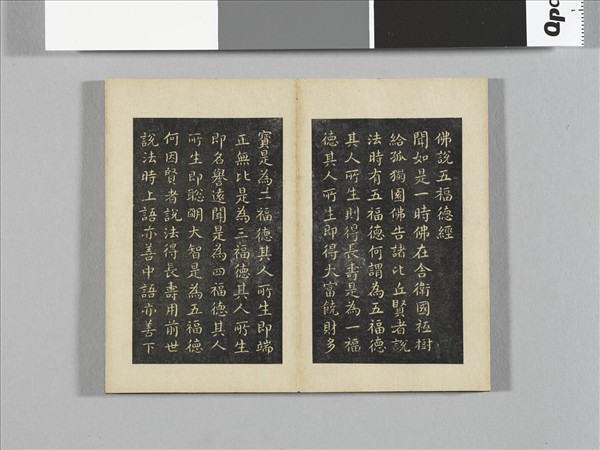 佛說五福德經
聞如是一時佛在舍衛國祇樹
給孤獨園佛告諸比丘賢者說
法時有五福德何謂為五福德
其人所生則得長壽是為一福
德其人所生即得大富饒財多
寶是為二福德其人所生即端
正無比是為三福德其人所生
即名譽遠聞是為四福德其人
所生即聰明大智是為五福德
何因賢者說法得長壽用前世
說法時上語亦善中語亦善下